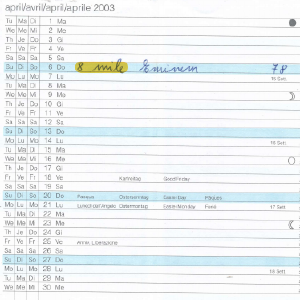 april/avril/april/aprile 2003
Tu Ma Di 1 Ma
We Me Mi 2 Me
Th Je Do 3 Gi
Fr Ve Fr 4 Ve
Sa Sa Sa 5 Sa
Su Di So 6 Do 8 mile Eminem
Mo Lu Mo 7 Lu 15 Sett
Tu Ma Di 8 Ma
We Me Mi 9 Me
Th Je Do 10 Gi
Fr Ve Fr 11 Ve
Sa Sa Sa 12 Sa
Su Di So 13 Do
Mo Lu Mo 14 Lu 16 Sett
Tu Ma Di 15 Ma
We Me Mi 16 Me
Th Je Do 17 Gi
Fr Ve Fr 18 Ve Karfreitag Good Friday
Sa Sa Sa 19 Sa
Su Di So 20 Do Pasqua Ostersonntag Easter Day Pâques
Mo Lu Mo 21 Lu Lunedì dell'Angelo Ostermontag Easter Monday 17 Sett
Tu Ma Di 22 Ma
We Me Mi 23 Me
Th Je Do 24 Gi
Fr Ve Fr 25 Ve Anniv. Liberazione
Sa Sa Sa 26 Sa
Su Di So 27 Do
Mo Lu Mo 28 Lu 18 Sett
Tu Ma Di 29 Ma
We Me Mi 30 Me